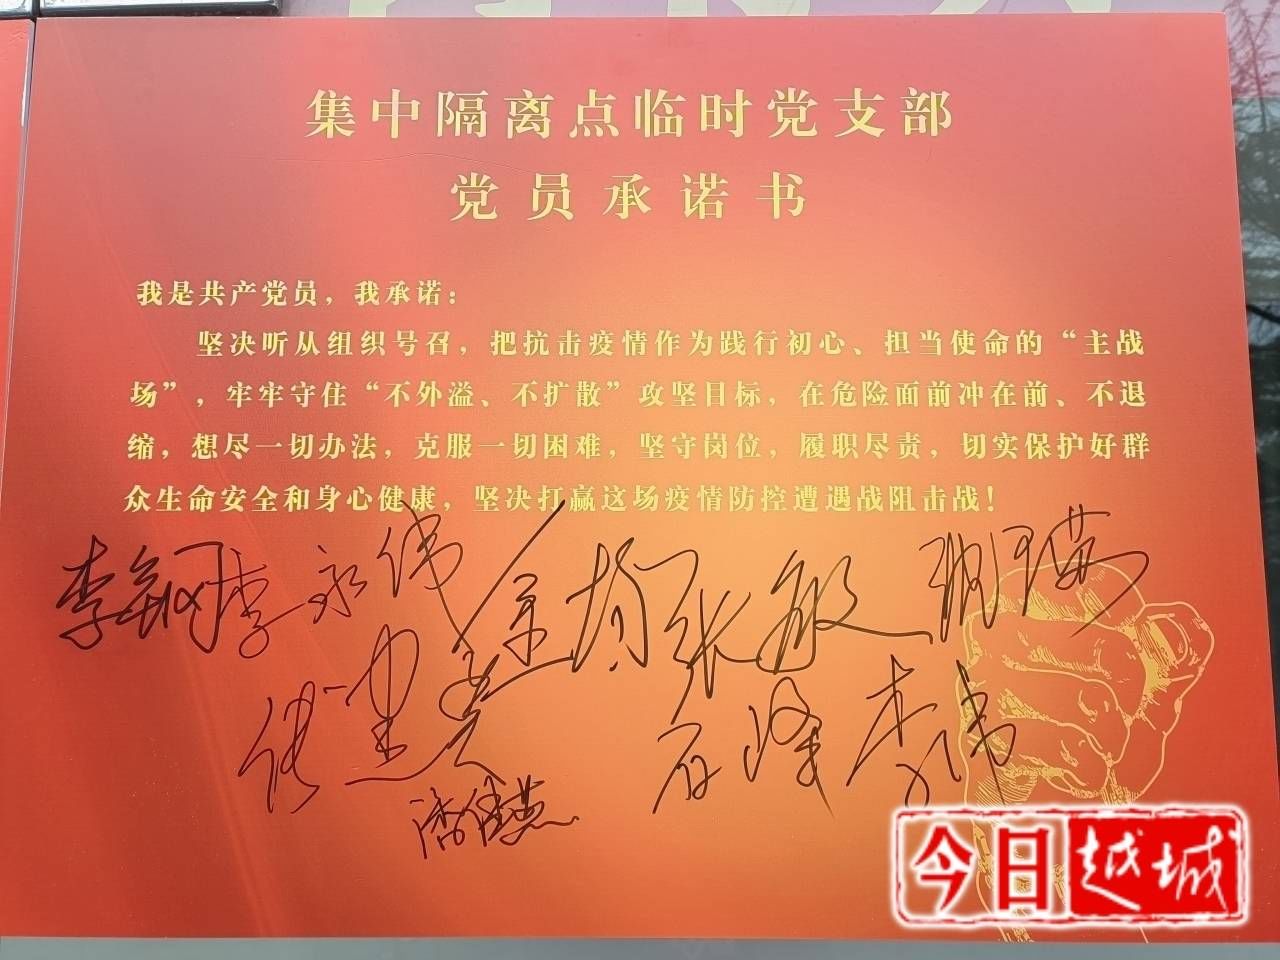 集中隔离点临时党支部
党员承诺书
我是共产党员，我承诺：
坚决听从组织号召，把抗击疫情作为践行初心、担当使命的“主战
场”，牢牢守住“不外溢、不扩散”攻坚目标，在危险面前冲在前、不退
缩，想尽一切办法，克服一切困难，坚守岗位，履职尽责，切实保护好群
众生命安全和身心健康，坚决打赢这场疫情防控遭遇战阻击战！
李永伟 张敏
李伟
今日越城